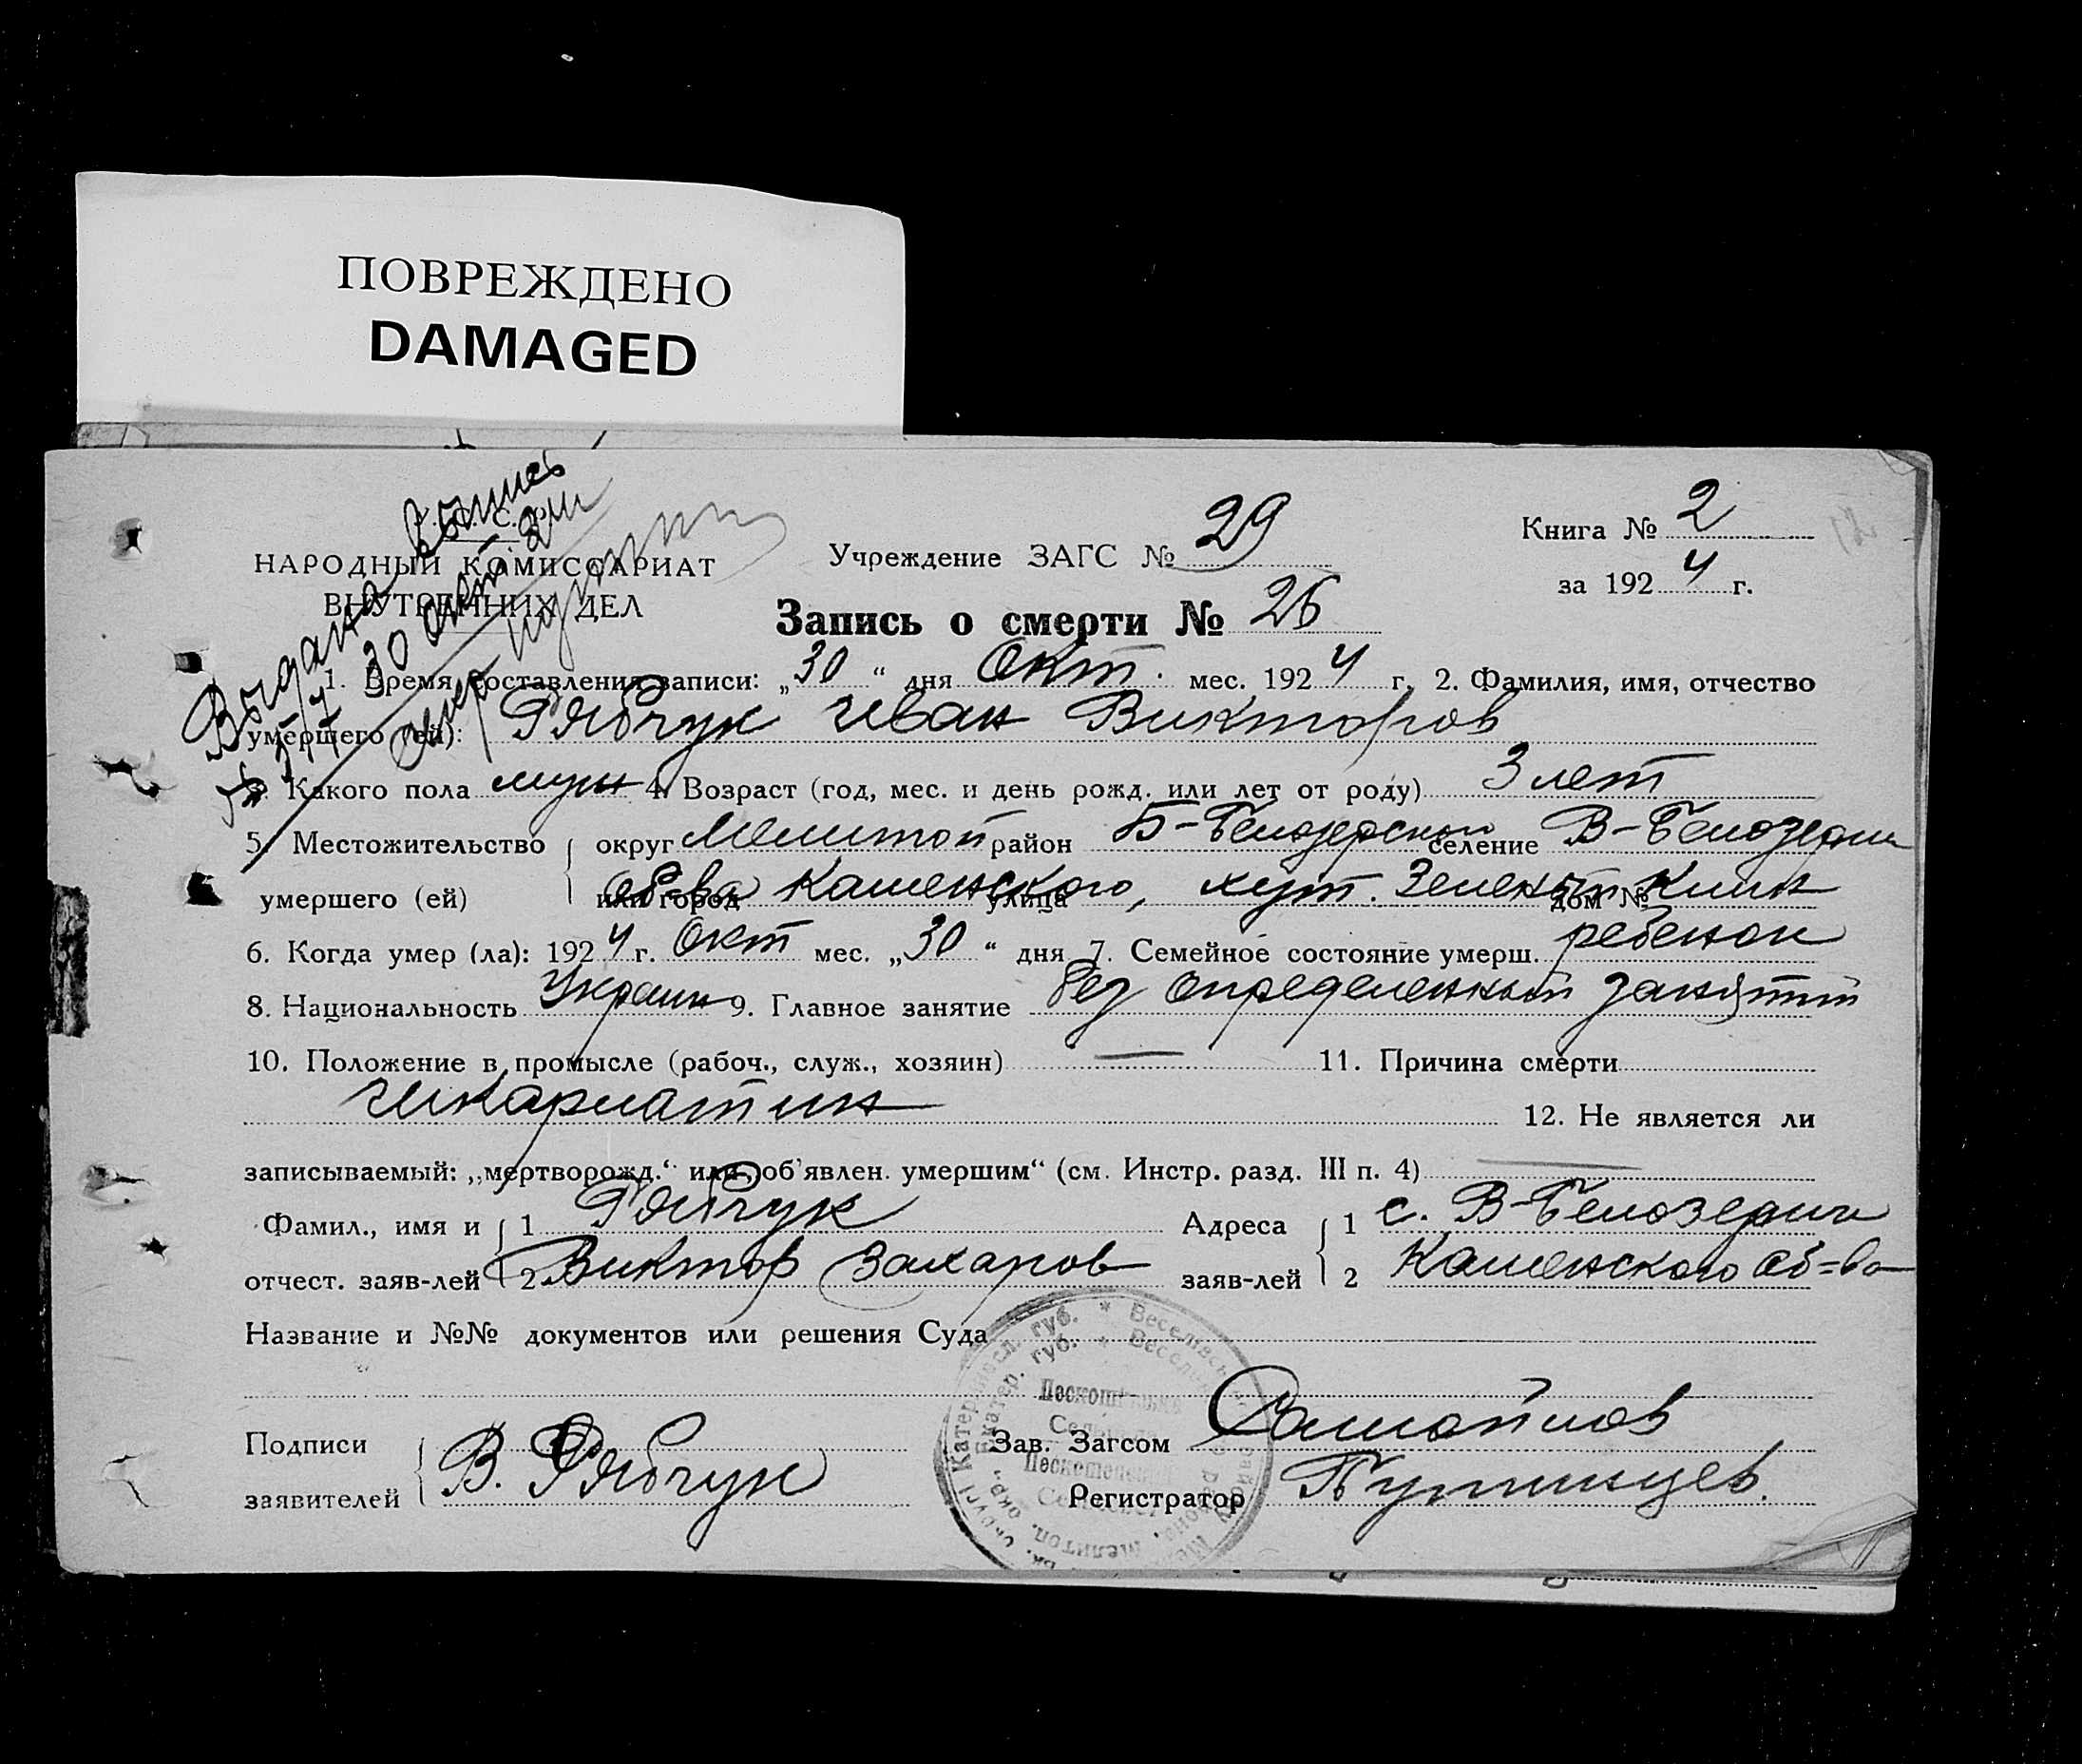 ПОВРЕЖДЕНО
DAMAGED
Выдана выпись
30 окт. 24
У. С. С. Р.
НАРОДНЫЙ КОМИССАРИАТ
ВНУТРЕННИХ ДЕЛ
Учреждение ЗАГС № 29
Книга № 2
за 1924 г.
Запись о смерти № 26
1. Время составления записи: „30“ дня Окт. мес. 1924 г. 2. Фамилия, имя, отчество
умершего (ей): Рябчук Иван Викторов
3. Какого пола муж 4. Возраст (год, мес. и день рожд. или лет от роду) 3 лет
5. Местожительство округ Мелитоп район Б-Белозерской селение В-Белозерки
умершего (ей) или город улица дом № об-ва Каменского, хут. Зеленый Клин
6. Когда умер (ла): 1924 г. Окт мес. „30“ дня 7. Семейное состояние умерш. ребенок
8. Национальность Украин 9. Главное занятие без определенный занятий
10. Положение в промысле (рабоч., служ., хозяин) — 11. Причина смерти
12. Не является ли
записываемый: „мертворожд.“ или „об'явлен. умершим“ (см. Инстр. разд. III п. 4) —
Фамил., имя и 1 Рябчук Адреса 1 с. В-Белозерки
отчест. заяв-лей 2 Виктор Захаров заяв-лей 2 Каменского об-ва
Название и №№ документов или решения Суда
Подписи Зав. Загсом Самойлов
заявителей В. Рябчук Регистратор